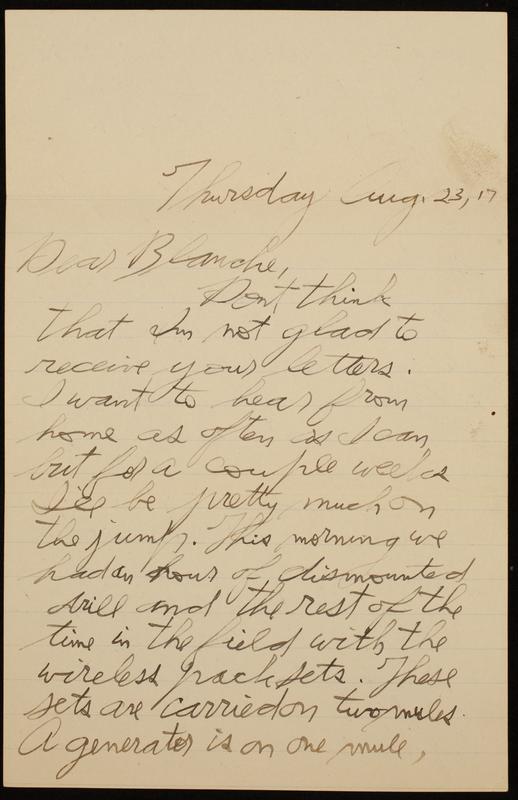 Thursday Aug. 23, 17
Dear Blanche,
Dont think
that Im not glad to
receive your letters.
I want to hear from
home as often as I can
but for a couple weeks
I'll be pretty much on
the jump. This morning we
had an hour of dismounted
drill and the rest of the
time in the field with the
wireless pack sets. These
sets are carried on two mules.
A generator is on one mule,